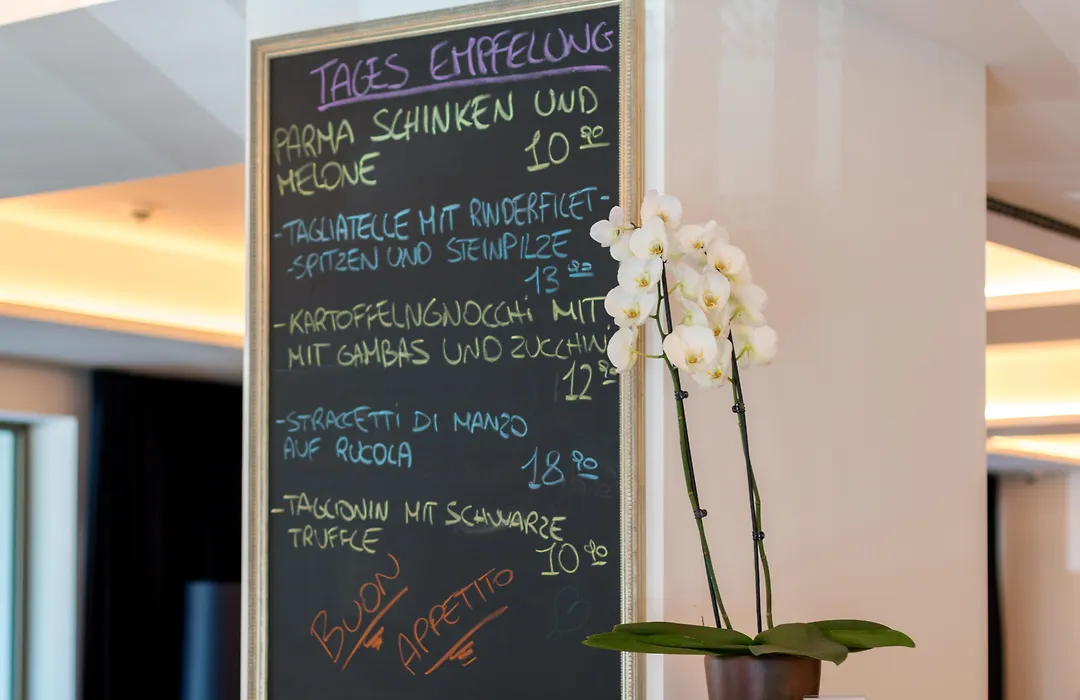 TAGES EMPFELUNG
PARMA SCHINKEN UND
MELONE 10 90
-TAGLIATELLE MIT RINDERFILET-
-SPITZEN UND STEINPILZE
13 90
-KARTOFFELNGNOCCHi MIT
MIT GAMBAS UND ZUCCHIN
12 90
-STRACCETTI DI MANZO
AUF RUCOLA 18 90
-TAGLIONIN MIT SCHWARZE
TRUFFLE 10 90
BUON
APPETITO